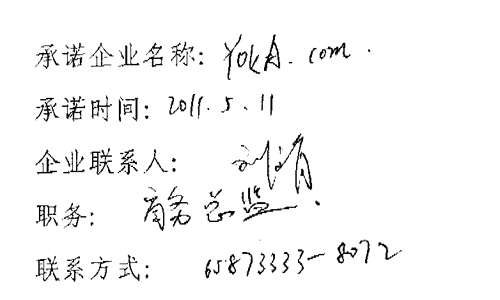 承诺企业名称: YOKA.com.
承诺时间: 2011.5.11
企业联系人: 刘
职务: 商务总监.
联系方式: 65873333-8072